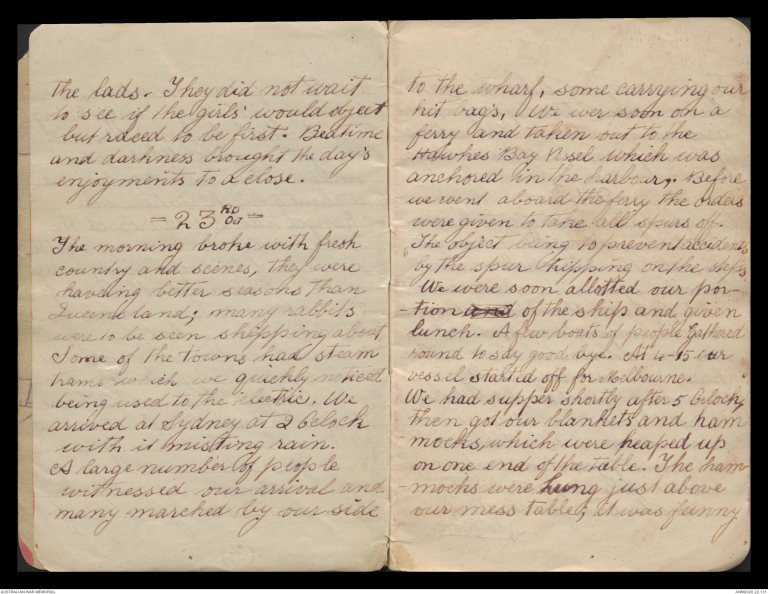 the lads. They did not wait
to see if the girls' would object
but raced to be first. Bedtime
and darkness brought the day's
enjoyments to a close.
= 23 RD Oct =
The morning broke with fresh
country and scenes, they were
haveing better seasons than
Queensland; many rabbits
were to be seen skipping about
Some of the towns had steam
trams which we quickly noticed
being used to the electric. We
arrived at Sydney at 2 Oclock
with it misting rain.
A large number of people
witnessed our arrival and
many marched by our side
to the wharf, some carrying our
kit bag's, We wer soon on a
ferry and taken out to the
Hawkes Bay Vessel which was
anchored in the harbour,. Before
we went aboard the ferry the orders
were given to take all spurs off.
The object being to prevent accidents
by the spur tripping on the steps
We were soon allotted our por-
-tion and of the ship and given
lunch. A few boats of people gathered
round to say good bye. At 4-15 our
vessel started off for Melbourne.
We had supper shortly after 5 Oclock,
then got our blankets and ham
-mocks, which were heaped up
on one end of the table. The ham-
-mocks were hung just above
our mess tables, it was funny
AUSTRALIAN WAR MEMORIAL